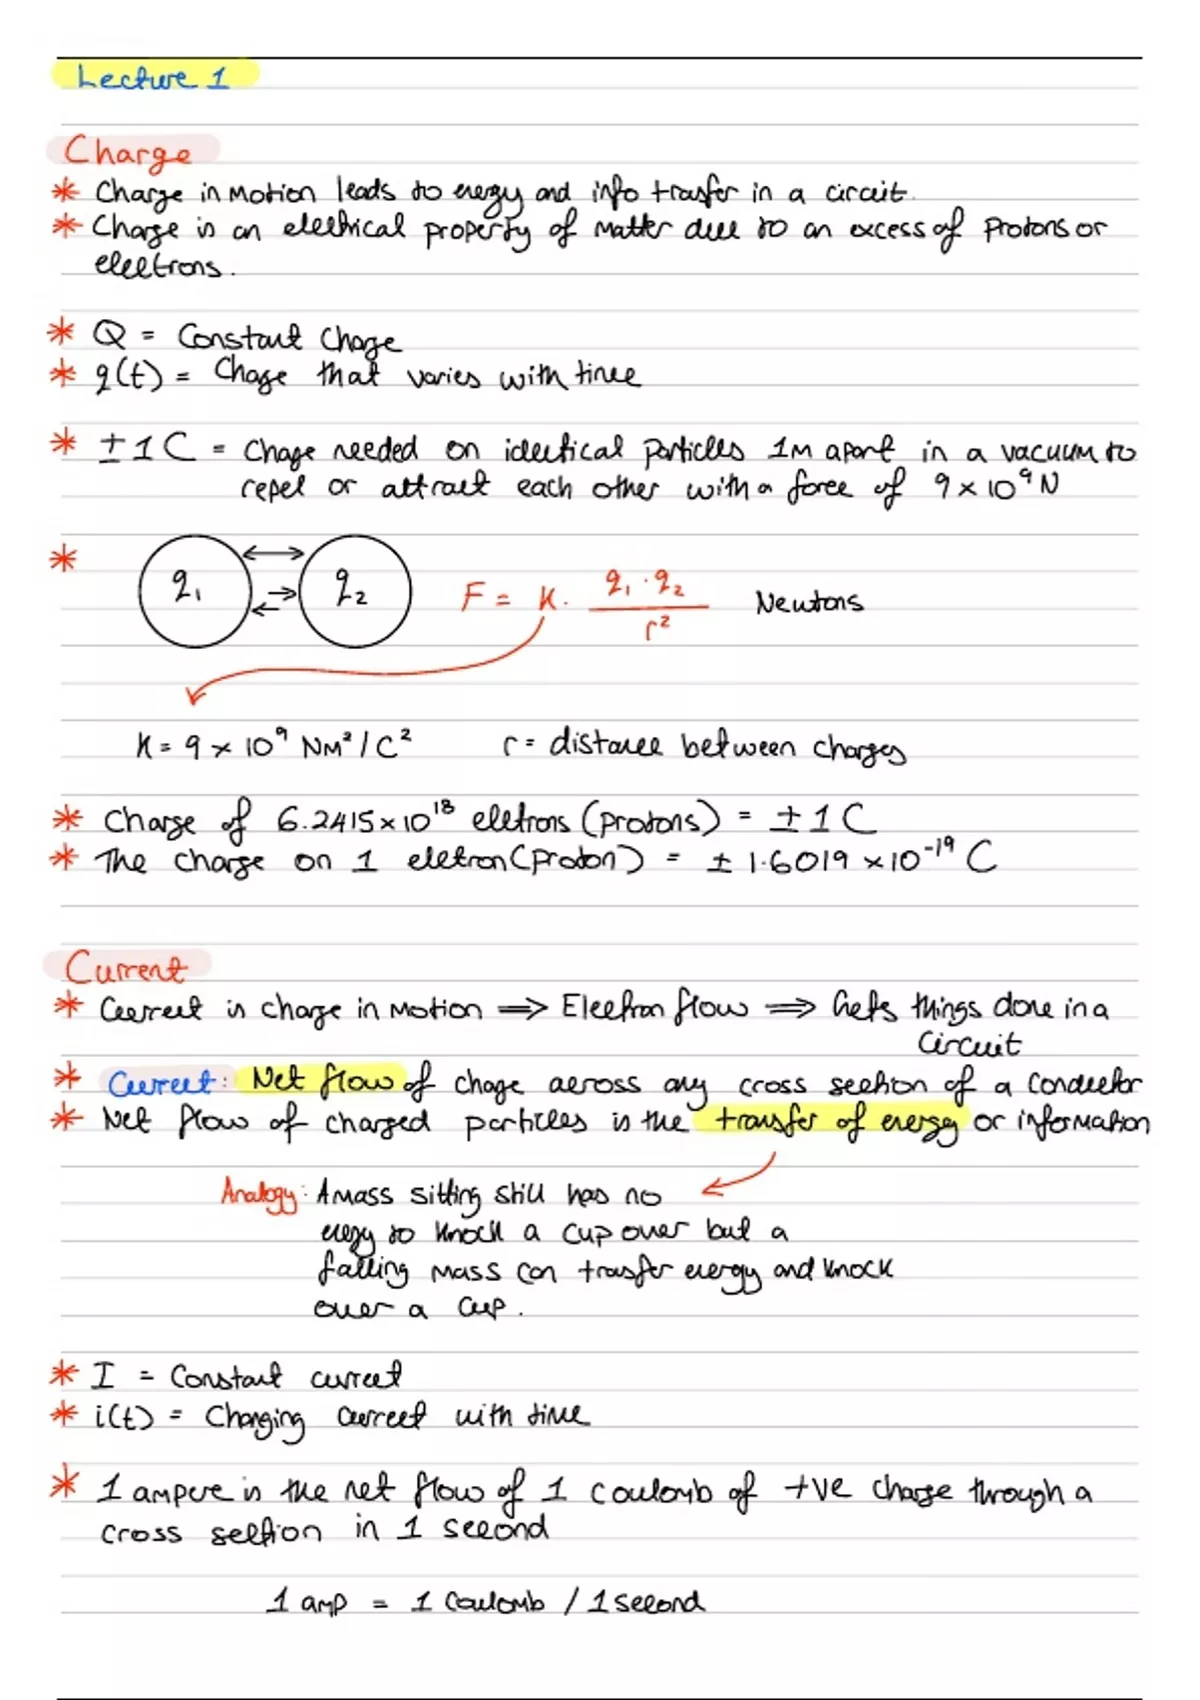 Lecture 1
Charge
* Charge in motion leads to energy and info transfer in a circuit.
* Charge is an electrical property of matter due to an excess of protons or
electrons.
* Q = Constant Charge
* q(t) = Charge that varies with time
* ±1C = Charge needed on identical particles 1m apart in a vacuum to
repel or attract each other with a force of 9 × 10⁹ N
* q₁ q₂ F = K. q₁ · q₂ / r² Newtons
K = 9 × 10⁹ Nm²/C² r = distance between charges
* Charge of 6.2415 × 10¹⁸ eletrons (protons) = ±1C
* The charge on 1 eletron (proton) = ± 1.6019 × 10⁻¹⁹ C
Current
* Current is charge in motion ⟹ Electron flow ⟹ Gets things done in a
circuit
* Current: Net flow of charge across any cross section of a conductor
* Net flow of charged particles is the transfer of energy or information
Analogy: A mass sitting still has no
energy to knock a cup over but a
falling mass can transfer energy and knock
over a cup.
* I = Constant current
* i(t) = Changing current with time
* 1 ampere is the net flow of 1 coulomb of +ve charge through a
cross section in 1 second
1 amp = 1 Coulomb / 1 second